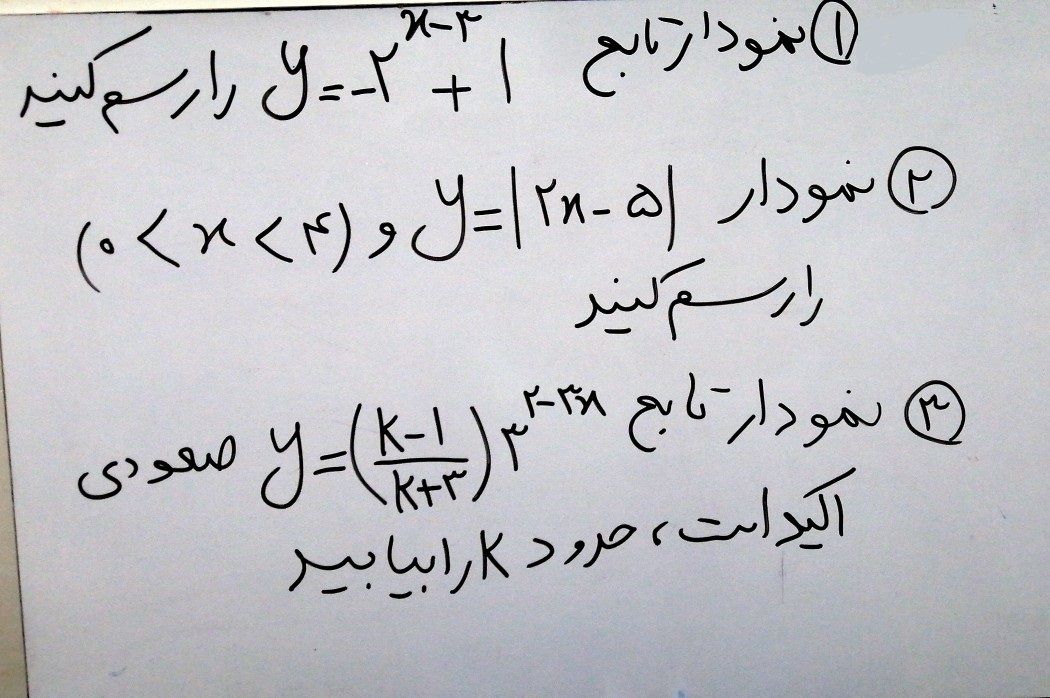 ① نمودار تابع y=-۲^{x-۳}+1 را رسم کنید
② نمودار y=|۲x-۵| و (۰<x<۴)
را رسم کنید
③ نمودار تابع y=(\frac{k-1}{k+۳})۳^{۲-۳x} صعودی
اکید است، حدود k را بیابید